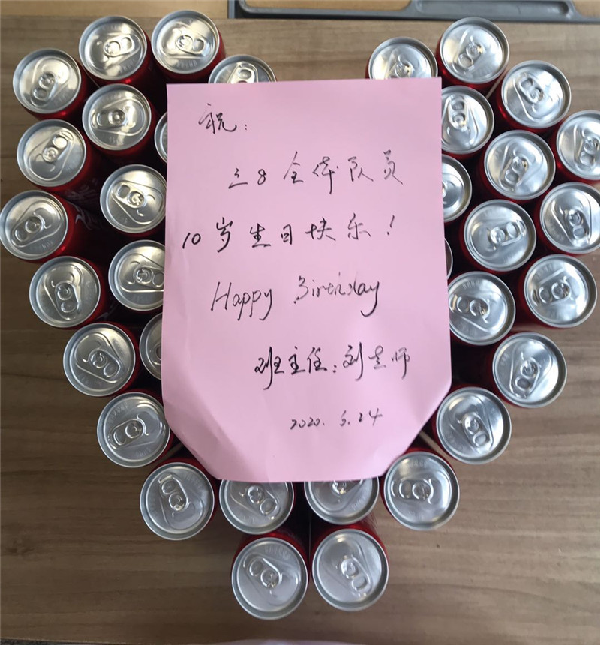 祝:
三8全体队员
10岁生日快乐!
Happy Birthday
班主任:刘老师
2020. 5. 24